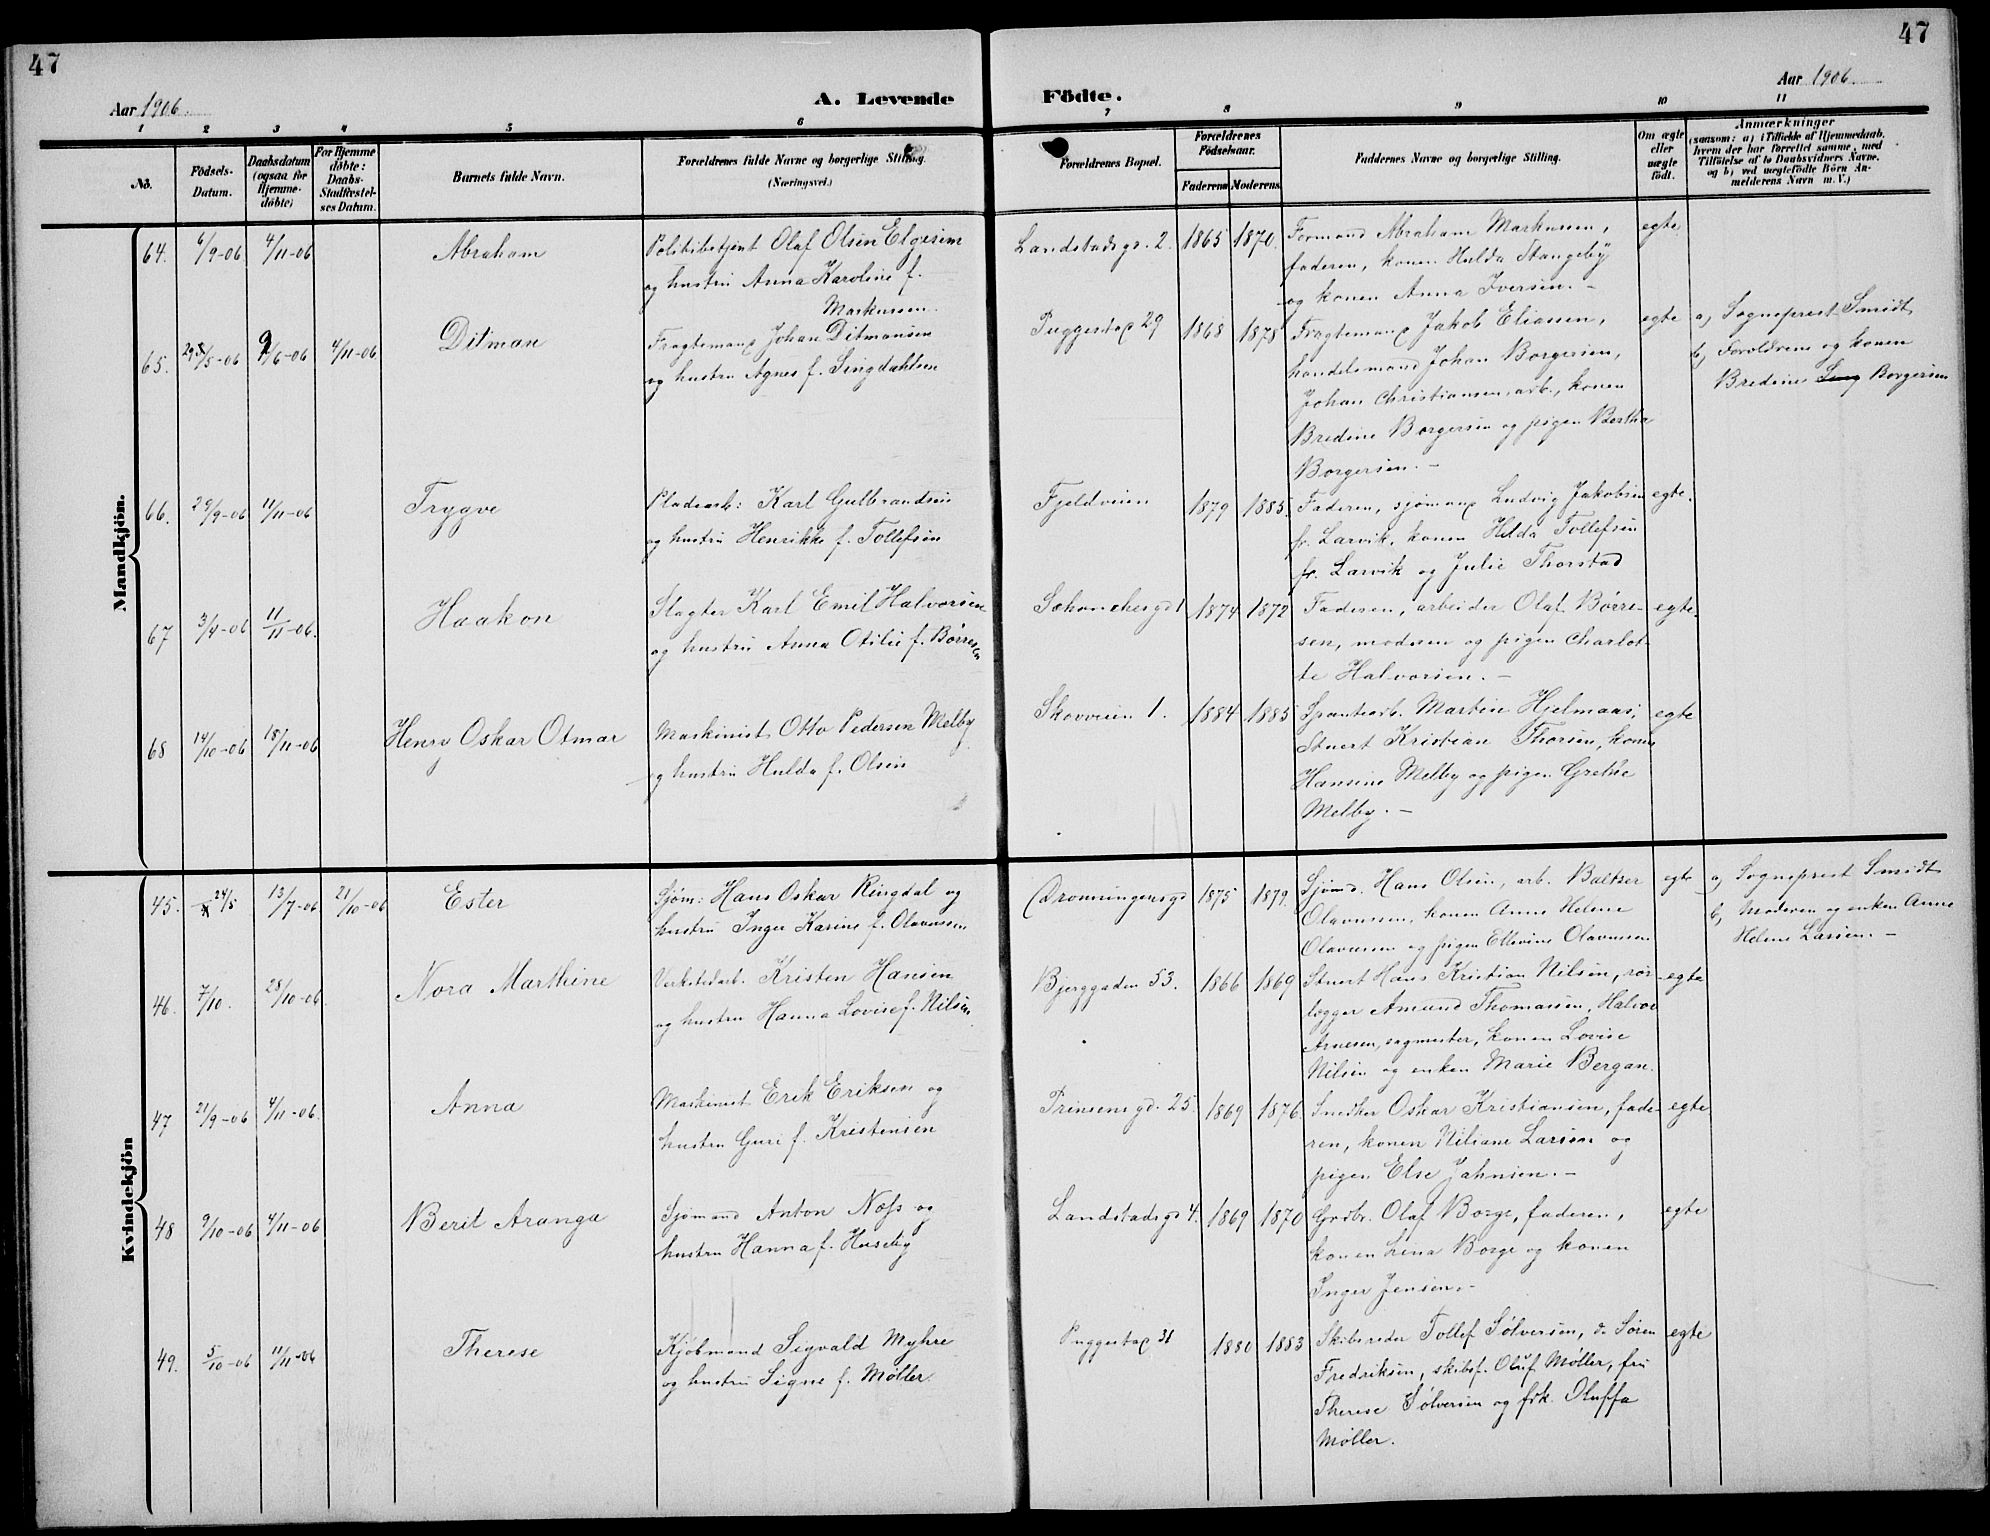 47
47
Aar 1906.
A. Levende
Födte.
Aar 1906.
1
2
3
4
5
6
7
8
9
10
11
No.
Födsels-
Datum.
Daabsdatum
(ogsaa för
Hjemme-
döbte)
For Hjemme
döbte:
Daabs-
Stadfæstel-
ses Datum.
Barnets fulde Navn.
Forældrenes fulde Navne og borgerlige Stilling.
(Næringsvei.)
Forældrenes Bopæl.
Forældrenes
Födselsaar.
Faderens
Moderens
Faddernes Navne og borgerlige Stilling.
Om ægte
eller
uægte
födt.
Anmærkninger
(saasom: a) i Tilfælde af Hjemmedaab,
hvem der har forrettet samme, med
Tilföielse af to Daabsvidners Navne,
og b) ved uægtefödte Börn An-
melderens Navn m. V.)
Mandkjön.
64. 6/9-06 4/11-06 Abraham
Politibetjent Olaf Olsen Elgesem
og hustru Anna Karoline f.
Markussen.
Landstadsgd. 2. 1865 1870.
Formand Abraham Markussen,
faderen, konen Hulda Stangeby
og konen Anna Iversen. -
egte
65. 29/5-06 9/6-06 4/11-06 Ditman
Fragtemand Johan Ditmansen
og hustru Agnes f. Lingdahlsen
Puggestad 29 1868 1878
Fragtemand Jakob Eliassen,
handelsmand Johan Borgersen,
Johan Christiansen, arb., konen
Bredine Borgersen og pigen Bertha
Borgersen. -
egte
a) Sogneprest Smidt
b) Foreldrene og konen
Bredine Borgersen
66. 29/9-06 11/11-06 Trygve
Pladearb: Karl Gulbrandsen
og hustru Henrikke f. Tollefsen
Fjeldveien 1879 1885.
Faderen, sjømand Ludvig Jakobsen
fr. Larvik, konen Hilda Tollefsen
fr. Larvik og Julie Thorstad
egte.
67 3/4-06 11/11-06. Haakon
Slagter Karl Emil Halvorsen
og hustru Anna Otilie f. Børresen
Schanchesgd 1 1874 1872
Faderen, arbeider Olaf Børre-
sen, moderen og pigen Charlot-
te Halvorsen. -
egte.
68 14/10-06 18/11-06 Henry Oskar Otmar
Maskinist Otto Pedersen Melby
og hustru Hulda f. Olsen
Skovveien 1. 1884 1885
Spantearb. Martin Hjelmaas,
Stuert Kristian Thorsen, konen
Hansine Melby og pigen Grethe
Melby. -
egte
Kvindekjön
45. 24/5 13/7-06 21/10-06 Ester
Sjøm: Hans Oskar Ringdal og
hustru Inger Karine f. Olavessen
Dronningensgd 1875 1879.
Sjømd. Hans Olsen, arb. Baltzer
Olavessen, konen Anne Helene
Olavessen og pigen Ellevine Olavessen
egte
a) Sogneprest Smidt
b) Moderen og enken Anne
Helene Larsen. -
46. 7/10. 28/10-06 Nora Marthine
Verkstedarb. Kristen Hansen
og hustru Hanna Lovise f. Nilsen
Bjerggaden 53. 1866 1869
Stuert Hans Kristian Nilsen, rør-
lægger Amund Thomassen, Halvor
Arnesen, sagmester, konen Lovise
Nilsen og enken Marie Bergan.
egte
47 21/9-06 4/11-06. Anna
Maskinist Erik Eriksen og
hustru Guri f. Kristensen
Prinsensgd. 25. 1869 1876.
Snedker Oskar Kristiansen, fade-
ren, konen Niliane Larsen og
pigen Else Jahnsen. -
egte
48 9/10-06 4/11-06 Berit Aranga
Sjømand Anton Næss og
hustru Hanna f. Huseby
Landstadsgd 4. 1869 1870
Grdbr. Olaf Borge, faderen,
konen Lina Borge og konen
Inger Jensen. -
egte
49. 5/10-06 11/11-06 Therese
Kjøbmand Sigvald Myhre
og hustru Signe f. Møller.
Puggestad 31 1880 1883
Skibsreder Tollef Sølversen, do Søren
Fredriksen, skibsf. Oluf Møller, fru
Therese Sølversen og frk. Oluffa
Møller.
egte